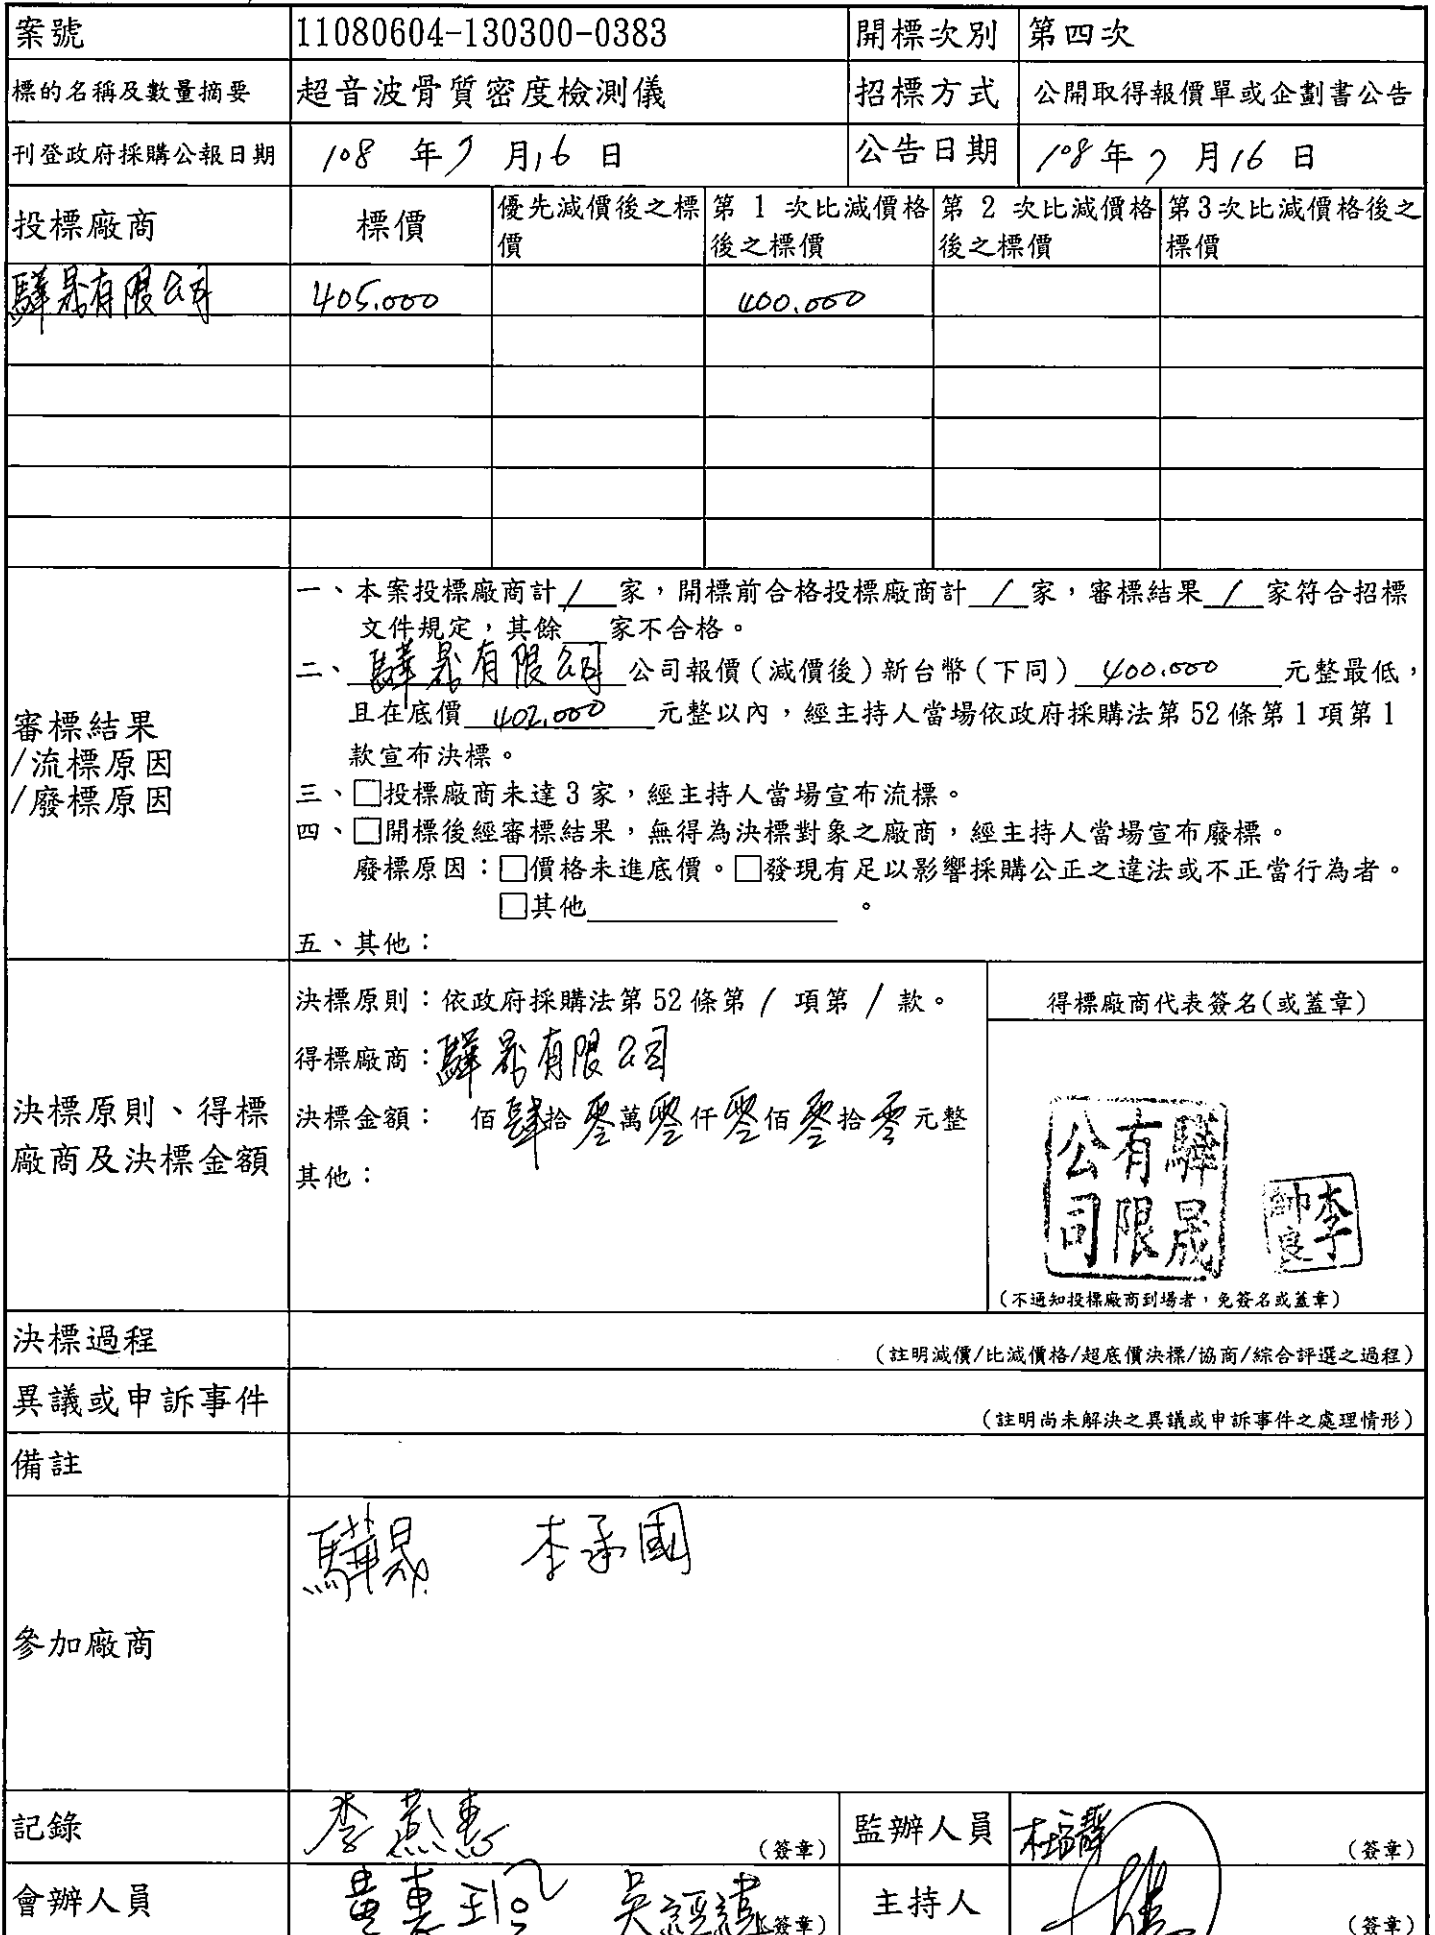 案號 11080604-130300-0383 開標次別 第四次
標的名稱及數量摘要 超音波骨質密度檢測儀 招標方式 公開取得報價單或企劃書公告
刊登政府採購公報日期 108 年 7 月 16 日 公告日期 108 年 7 月 16 日
投標廠商 標價 優先減價後之標價 第 1 次比減價格後之標價 第 2 次比減價格後之標價 第3次比減價格後之標價
驊晟有限公司 405.000 400.000
審標結果
/流標原因
/廢標原因
一、本案投標廠商計 / 家，開標前合格投標廠商計 / 家，審標結果 / 家符合招標
文件規定，其餘 家不合格。
二、驊晟有限公司 公司報價(減價後)新台幣(下同) 400.000 元整最低，
且在底價 402,000 元整以內，經主持人當場依政府採購法第 52 條第 1 項第 1
款宣布決標。
三、□投標廠商未達 3 家，經主持人當場宣布流標。
四、□開標後經審標結果，無得為決標對象之廠商，經主持人當場宣布廢標。
廢標原因：□價格未進底價。□發現有足以影響採購公正之違法或不正當行為者。
□其他 。
五、其他：
決標原則、得標
廠商及決標金額
決標原則：依政府採購法第 52 條第 / 項第 / 款。
得標廠商：驊晟有限公司
決標金額： 佰肆拾零萬零仟零佰零拾零元整
其他：
得標廠商代表簽名(或蓋章)
驊晟有限公司
李帥良
(不通知投標廠商到場者，免簽名或蓋章)
決標過程 (註明減價/比減價格/超底價決標/協商/綜合評選之過程)
異議或申訴事件 (註明尚未解決之異議或申訴事件之處理情形)
備註
參加廠商 驊晟 李承國
記錄 李燕惠 (簽章) 監辦人員 (簽章)
會辦人員 (簽章) 主持人 (簽章)